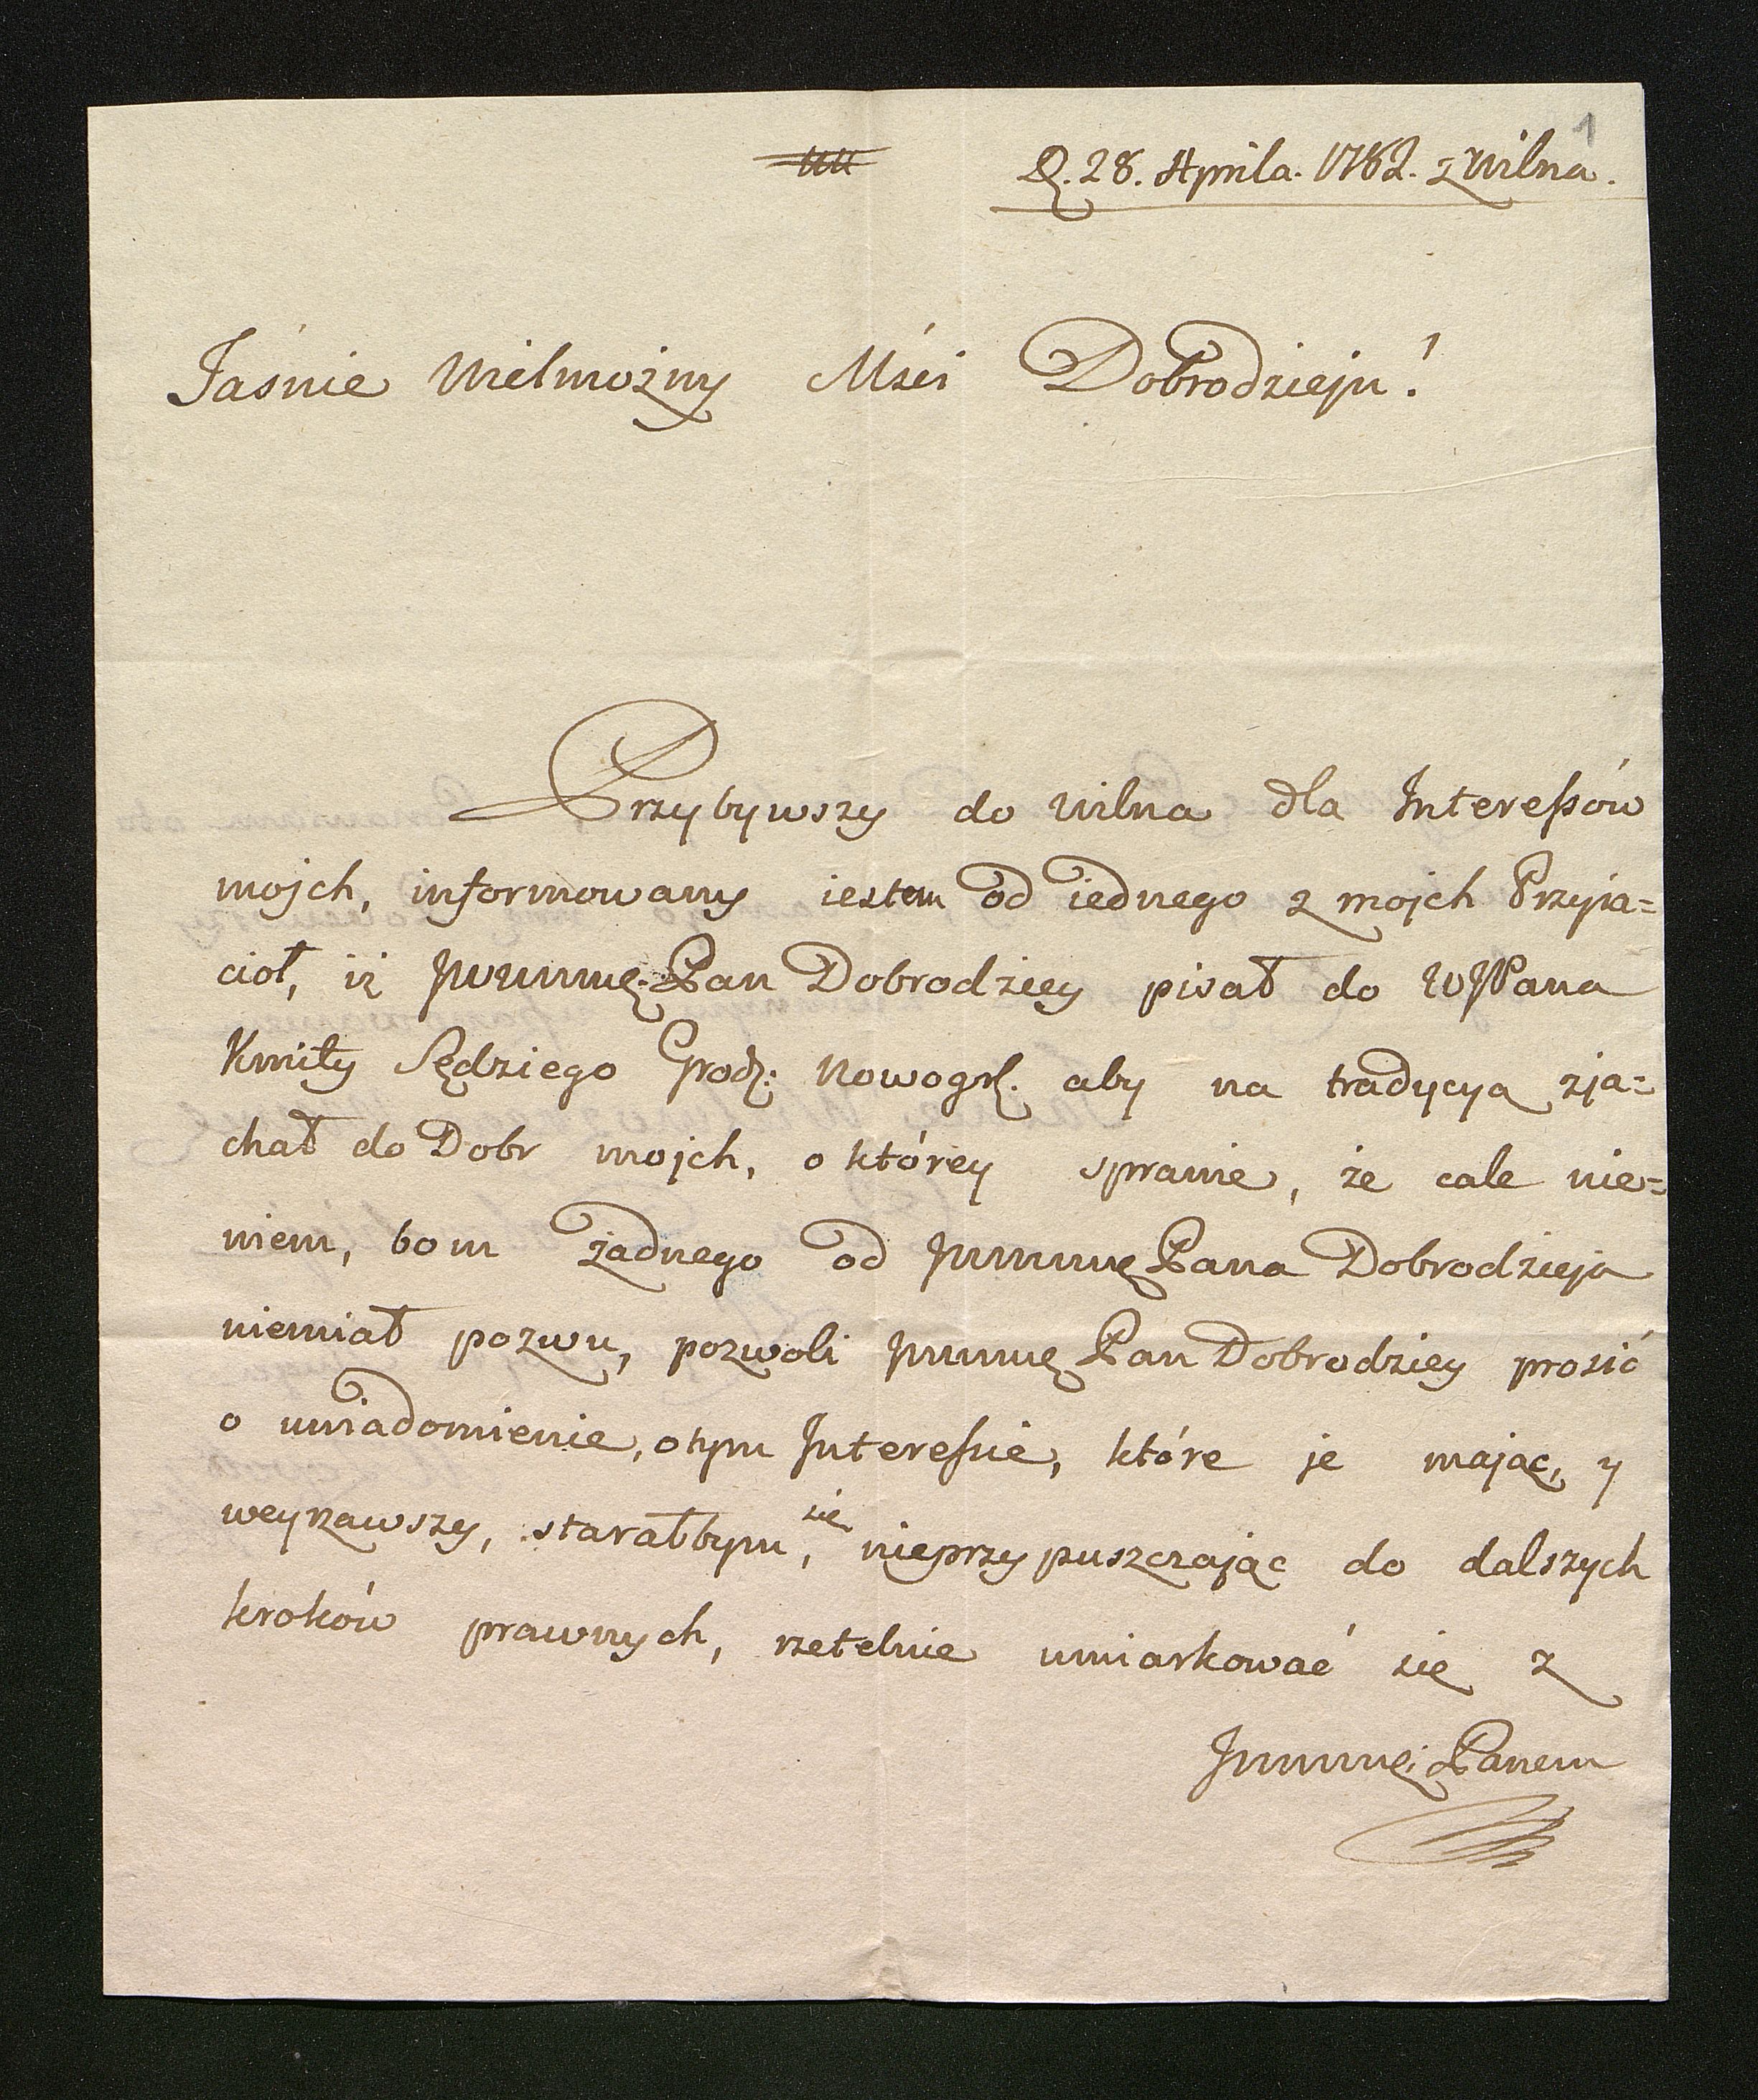 1
D. 28. Aprila. 1782. z Wilna.
Jaśnie Wielmożny Mści Dobrodzieju!
Przybywszy do Wilna dla Interessów
mojch, informowany iestem od iednego z mojch Przyia=
cioł, iż JWWMMę. Pan Dobrodziey pisał do WJPana
Kmity Sędziego Grodz: Nowogr. aby na tradycyą zja=
chał do Dobr mojch, o którey sprawie, że cale nie=
wiem, bom żadnego od JWWMMę Pana Dobrodzieja
niemiał pozwu, pozwoli JWWMMę Pan Dobrodziey prosić
o uwiadomienie, otym Interessie, które je mając, y
weyrzawszy, starałbym się, nieprzypuszczając do dalszych
kroków prawnych, rzetelnie umiarkować się z
JWWMMę: Panem